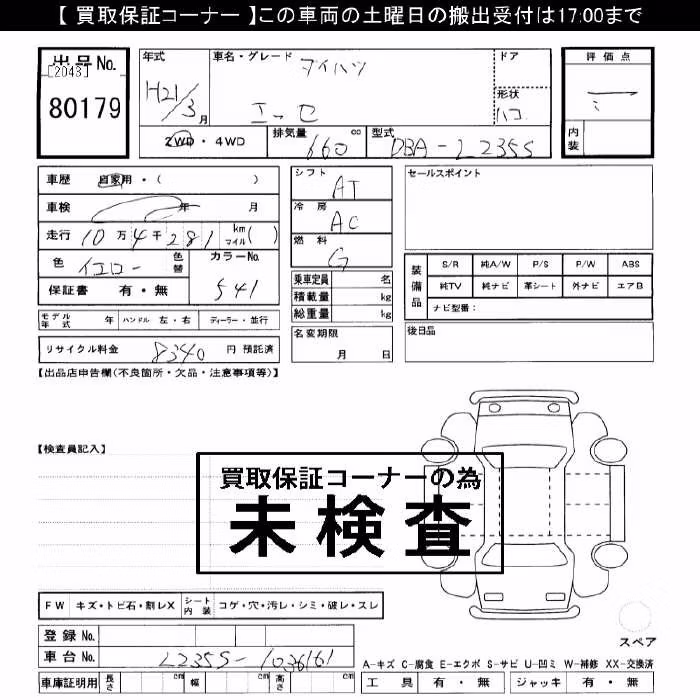 【 買取保証コーナー 】この車両の土曜日の搬出受付は17:00まで
出品No.
[2043]
80179
年式
H21/3月
車名・グレード
ダイハツ
エッセ
ドア
形状
ハコ
評価点
内装
2WD・4WD
排気量 660 cc
型式 DBA-L235S
車歴 自家用・( )
車検 年 月
走行 10万4千281 km マイル( )
色 イエロー 色替
カラーNo. S41
保証書 有・無
モデル年式 年 ハンドル 左・右 ディーラー・並行
リサイクル料金 8340 円 預託済
シフト AT
冷房 AC
燃料 G
乗車定員 名
積載量 kg
総重量 kg
名変期限 月 日
セールスポイント
装備品
S/R 純A/W P/S P/W ABS
純TV 純ナビ 革シート 外ナビ エアB
ナビ型番:
後日品
【出品店申告欄(不良箇所・欠品・注意事項等)】
【検査員記入】
買取保証コーナーの為
未検査
FW キズ・トビ石・割レX シート内装 コゲ・穴・汚レ・シミ・破レ・スレ
登録No.
車台No. L235S-1036161
車庫証明用 長さ cm 幅 cm 高さ cm
スペア
A-キズ C-腐食 E-エクボ S-サビ U-凹ミ W-補修 XX-交換済
工具 有・無 ジャッキ 有・無